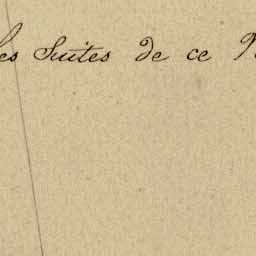 les Suites de ce